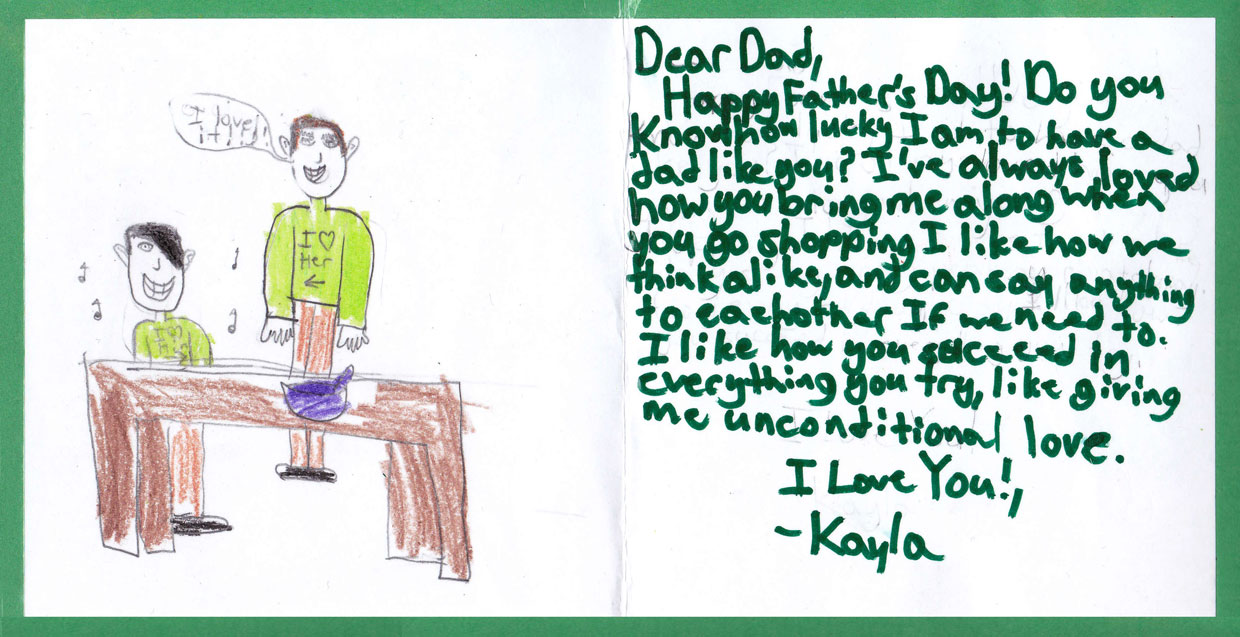 I love
it!!!
I ♡
Her
←
I ♡
Dear Dad,
Happy Father's Day! Do you
Know how lucky I am to have a
dad like you? I've always loved
how you bring me along when
you go shopping I like how we
think alike, and can say anything
to eachother If we need to.
I like how you succeed in
everything you try, like giving
me unconditional love.
I Love You!,
~Kayla